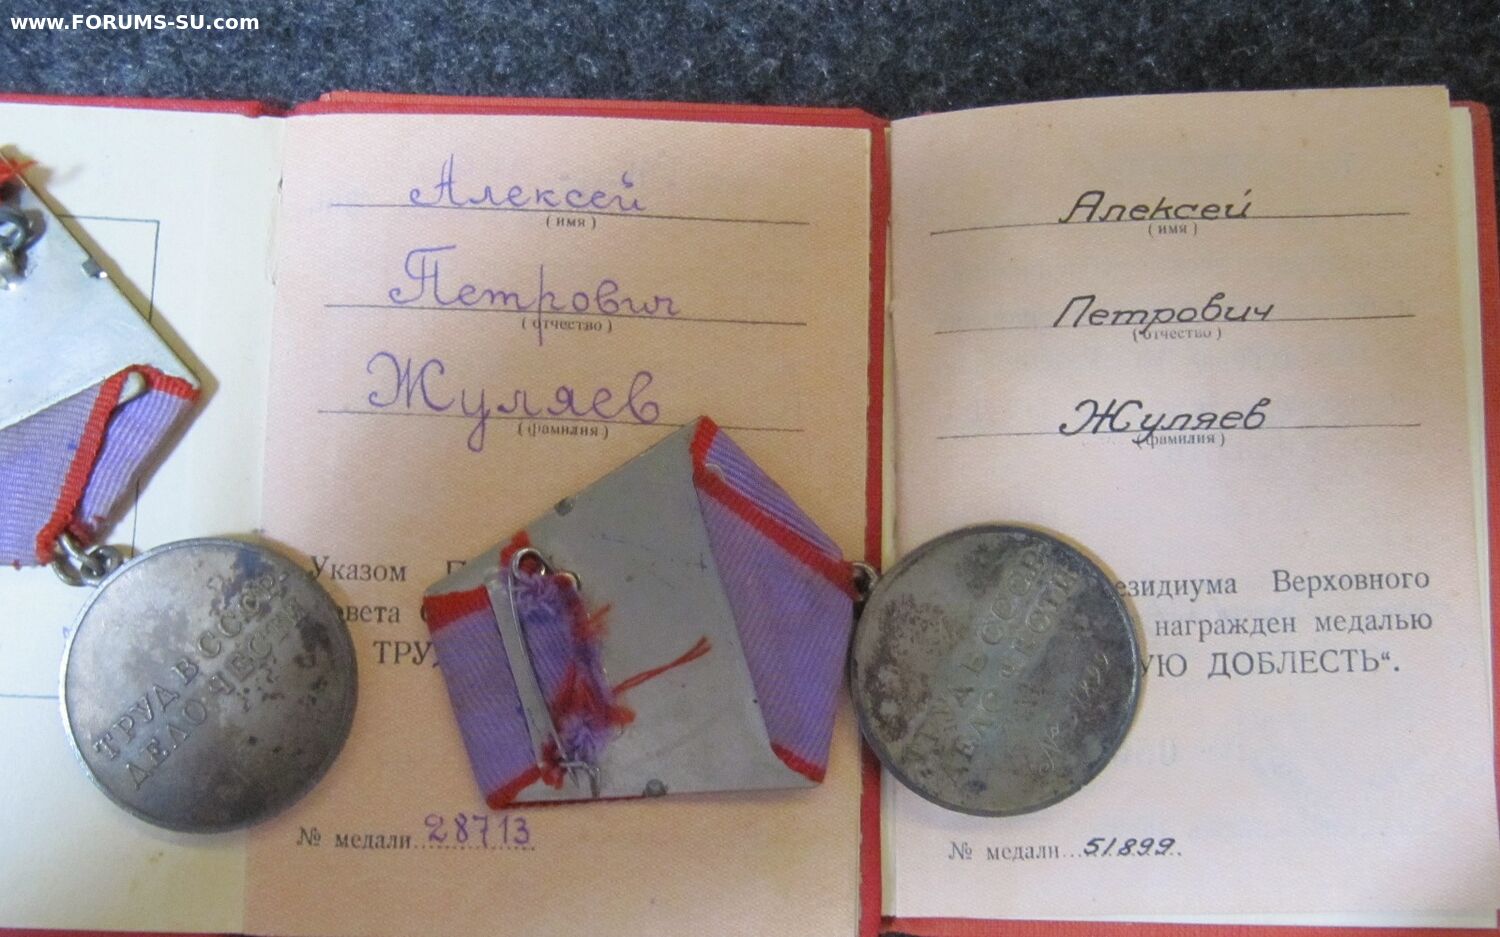 www.FORUMS-SU.com
Алексей
( имя )
Петрович
( отчество )
Жуляев
( фамилия )
Указом
ТРУ
№ медали 28713
ТРУД В СССР
ДЕЛО ЧЕСТИ
Алексей
( имя )
Петрович
( отчество )
Жуляев
( фамилия )
езидиума Верховного
награжден медалью
УЮ ДОБЛЕСТЬ“.
№ медали 51899
ТРУД В СССР
ДЕЛО ЧЕСТИ